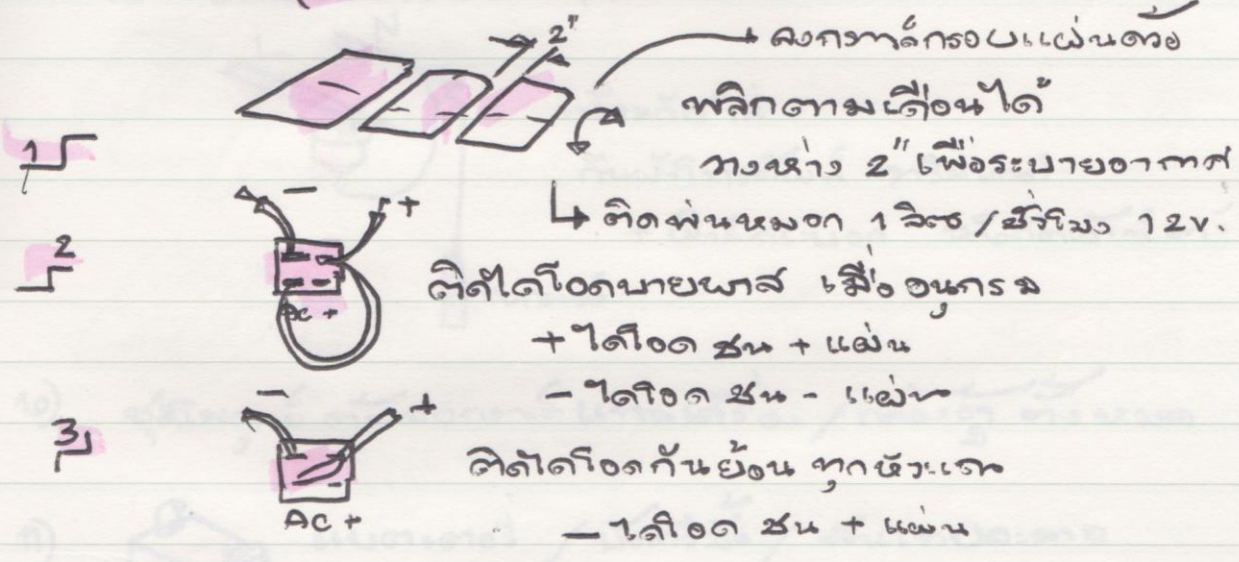 2"
ลงกราวด์กรอบแผ่นด้วย
พลิกตามเดือนได้
1
วางห่าง 2" เพื่อระบายอากาศ
- +
ติดพ่นหมอก 1 ลิตร/ชั่วโมง 12V.
2
ติดไดโอดบายพาส เมื่ออนุกรม
AC +
+ ไดโอด ชน + แผ่น
- ไดโอด ชน - แผ่น
- +
3
ติดไดโอดกันย้อน ทุกหัวแถว
AC +
- ไดโอด ชน + แผ่น